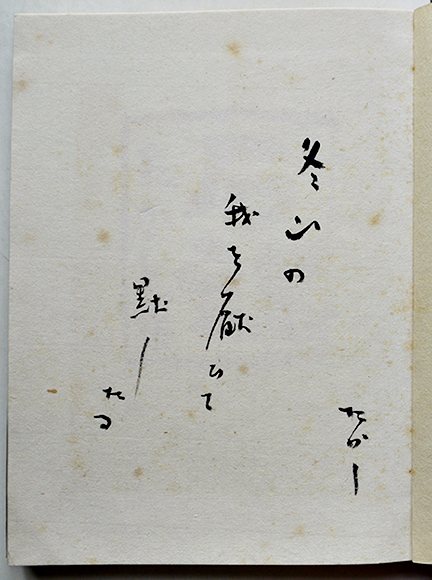 冬山の
我を厭ひて
黙し
たる
たかし